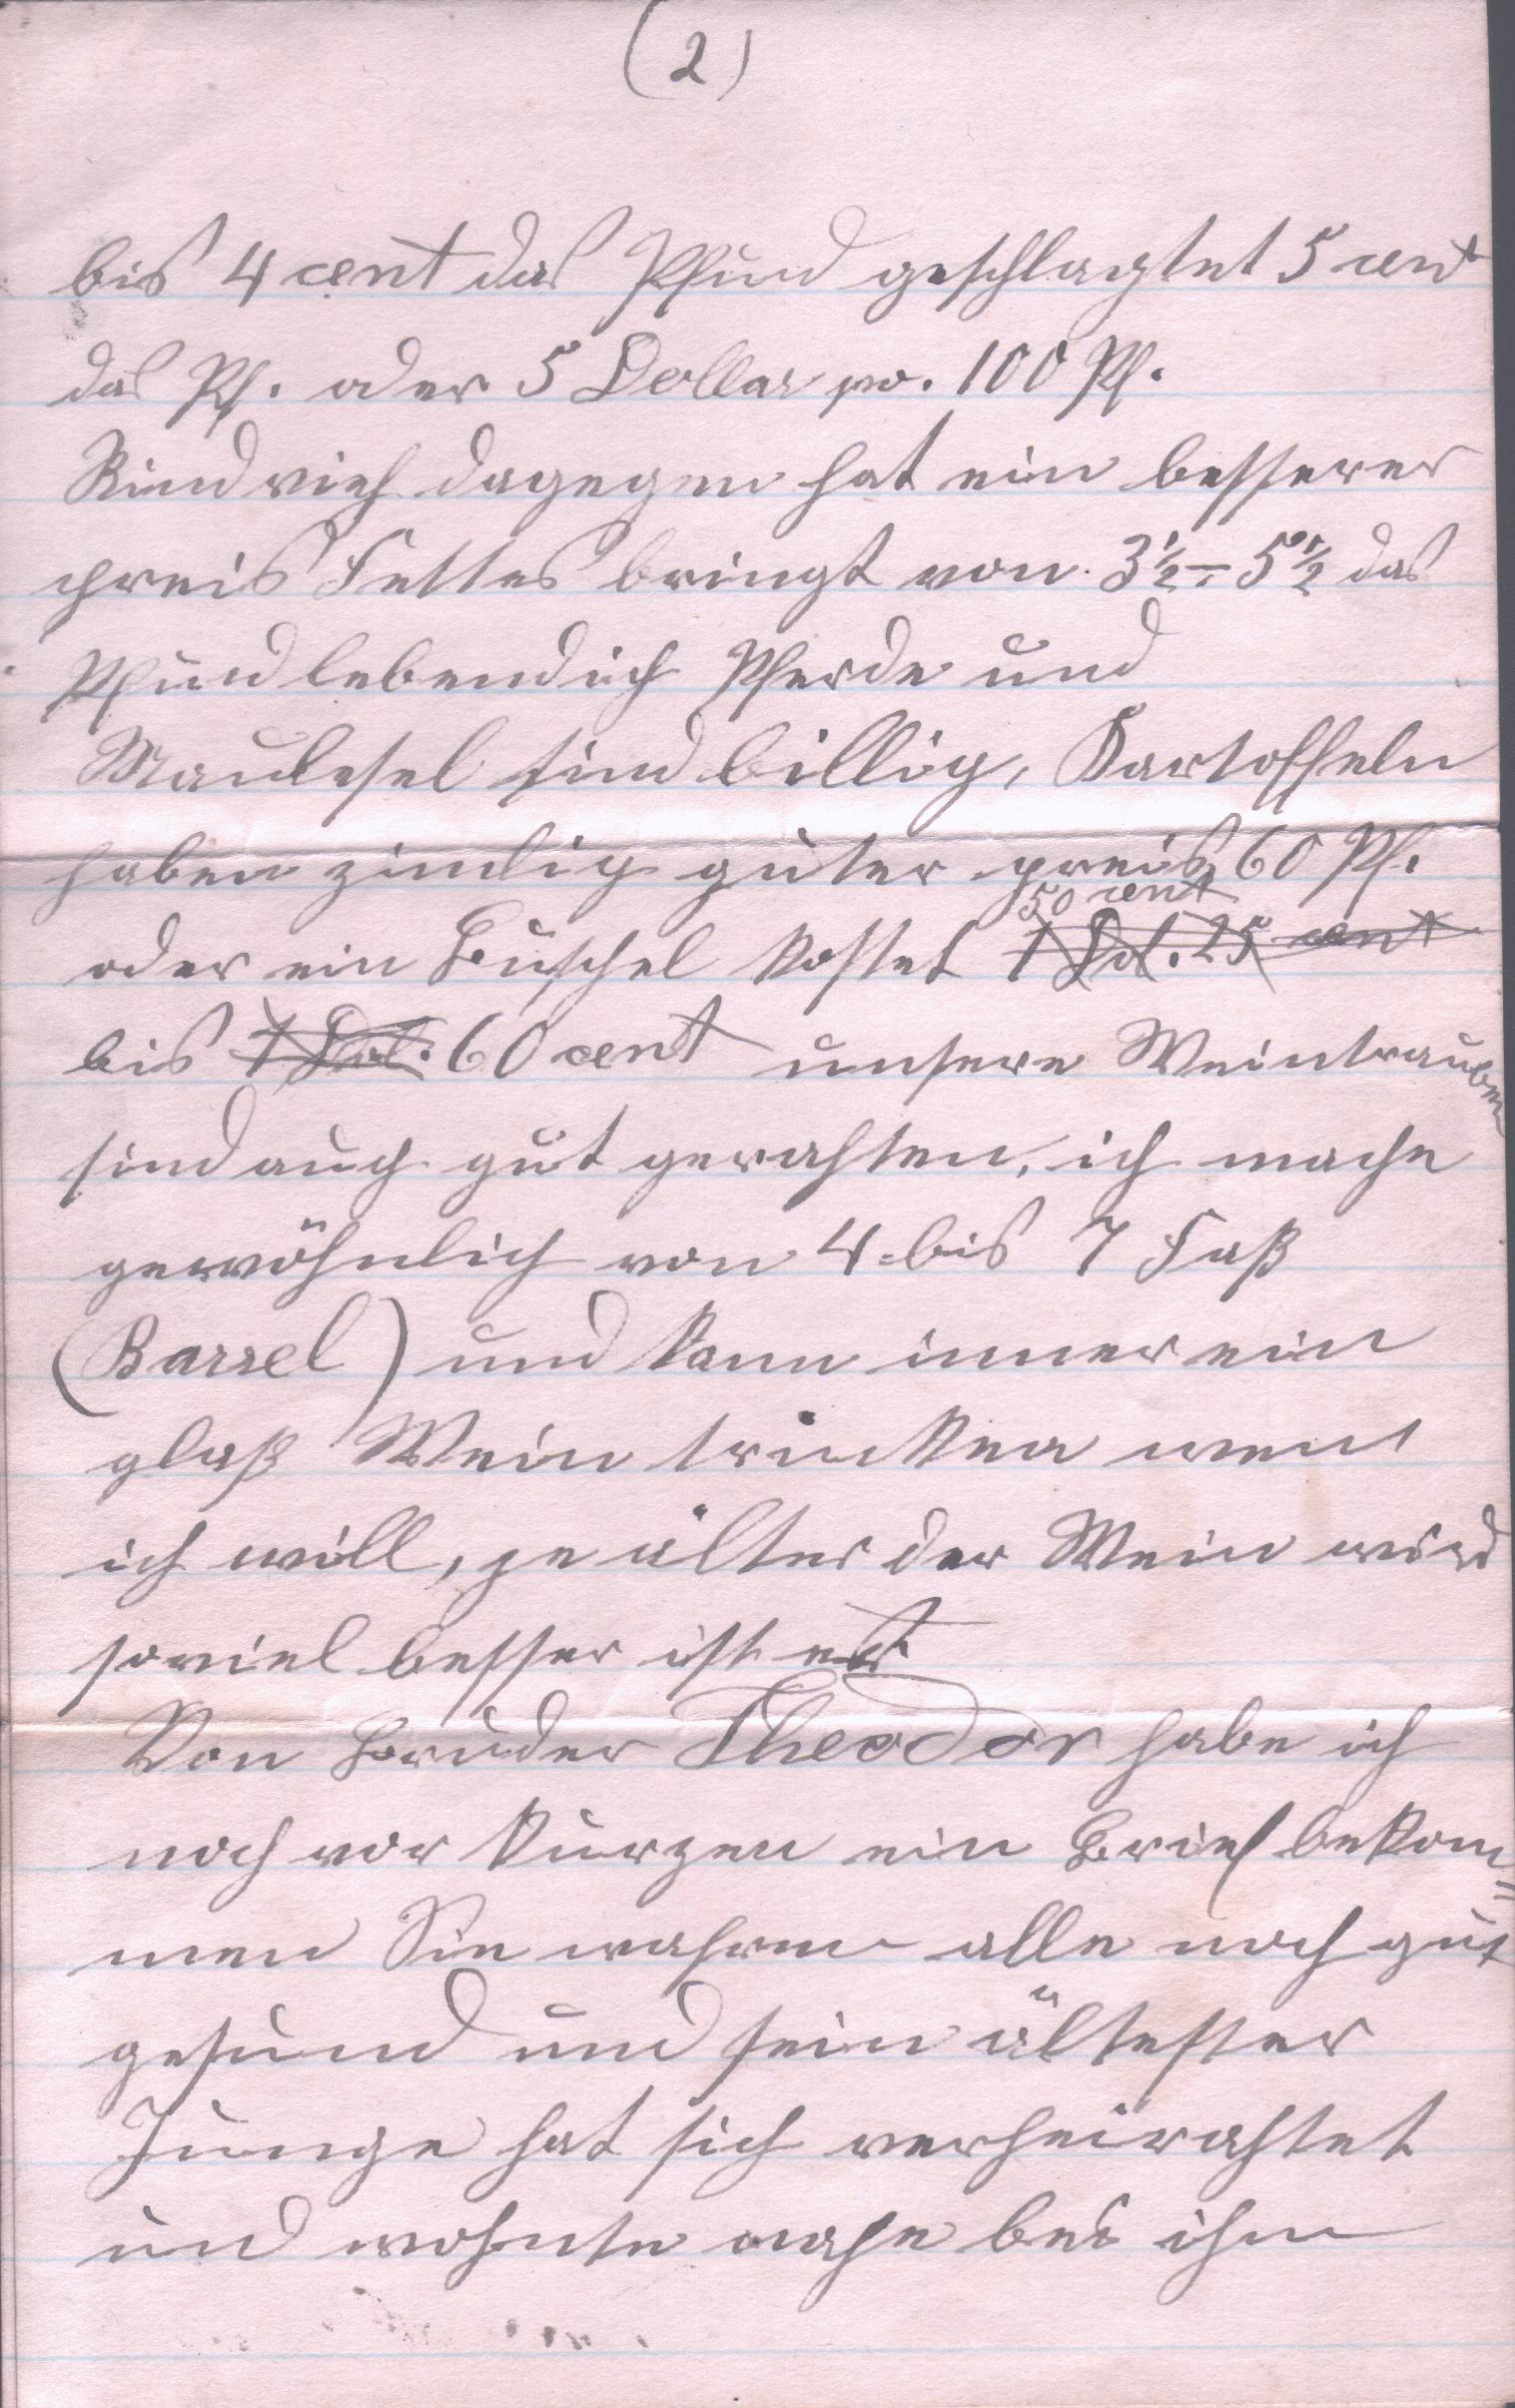 (2)
bis 4 cent das Pfund geschlagtet 5 cent
das Pf. oder 5 Dollar pr. 100 Pf.
Rindvieh dagegen hat ein besserer
preis Fettes bringt von 3½ - 5½ das
Pfund lebendich Pferde und
Maulesel sind billig, Kartoffeln
haben zimlig guter preis, 60 Pf.
50 cent
oder ein Buschel kostet 1 Dol. 25 cent
bis 1 Dol. 60 cent unsere Weintrauben
sind auch gut gerahten, ich mache
gewöhnlich von 4 bis 7 Faß
(Barrel) und kann immer ein
glaß Wein trinken wen
ich will, je älter der Wein wird
soviel besser ist es
Von Bruder Theodor habe ich
noch vor kurzen ein Brief bekom=
men Sie wahren alle noch gut
gesund und sein ältester
Junge hat sich verheirahtet
und wohnte nahe bei ihm